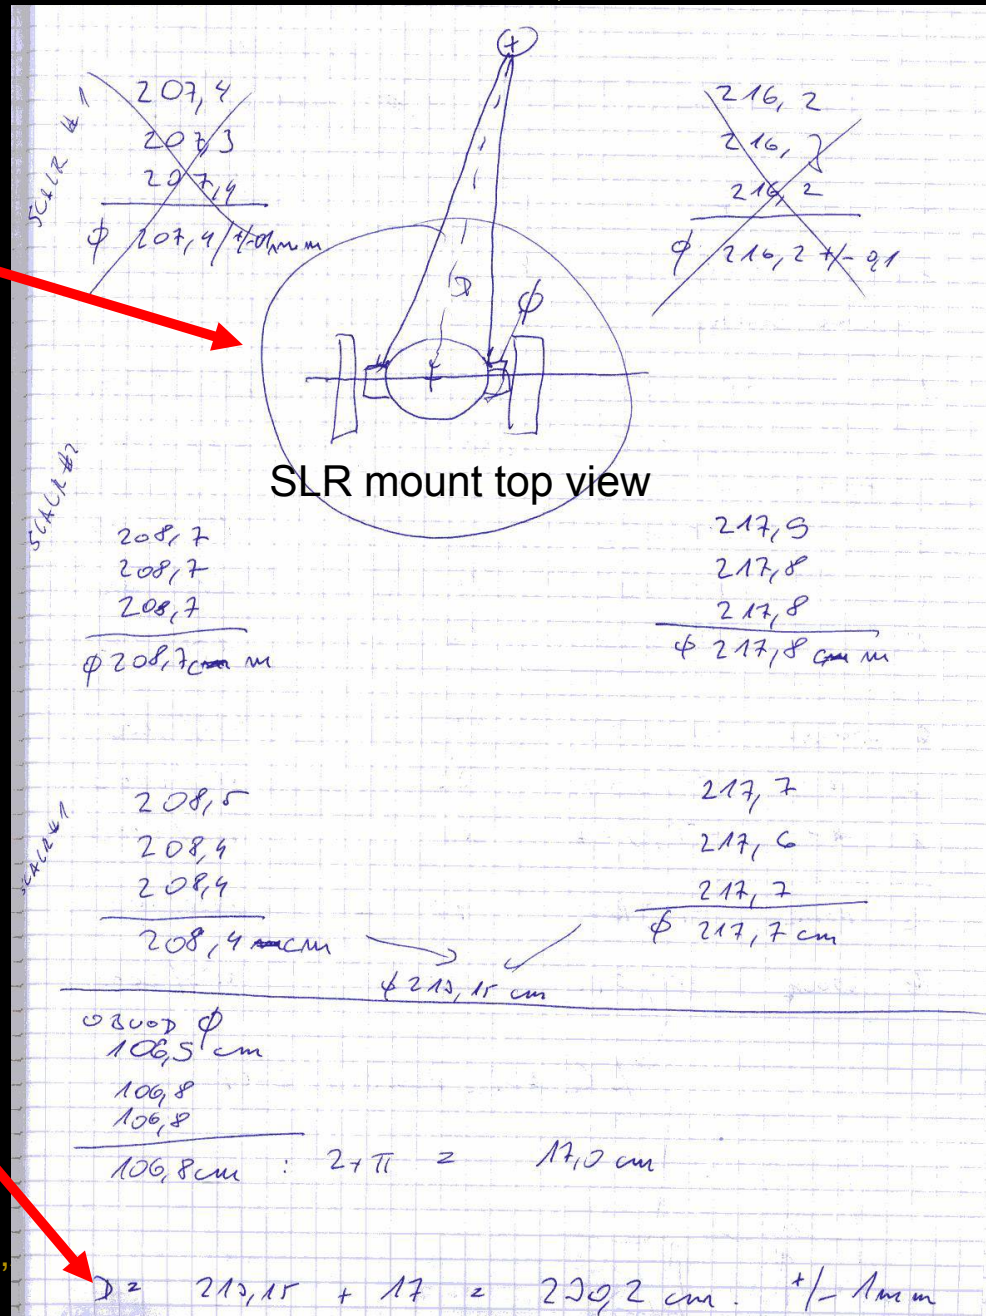 +
SCALR # 1
207,4
207,3
207,4
φ 207,4 +/- 0,1 mm
216,2
216,2
216,2
φ 216,2 +/- 0,1
D
φ
SLR mount top view
SCALR #2
208,7
208,7
208,7
φ 208,7 cm
217,9
217,8
217,8
φ 217,8 cm
SCALR #1
208,5
208,4
208,4
208,4 cm
217,7
217,6
217,7
φ 217,7 cm
φ 213,15 cm
OBVOD φ
106,9 cm
106,8
106,8
106,8 cm : 2 * π = 17,0 cm
D = 213,15 + 17 = 230,2 cm. +/- 1mm